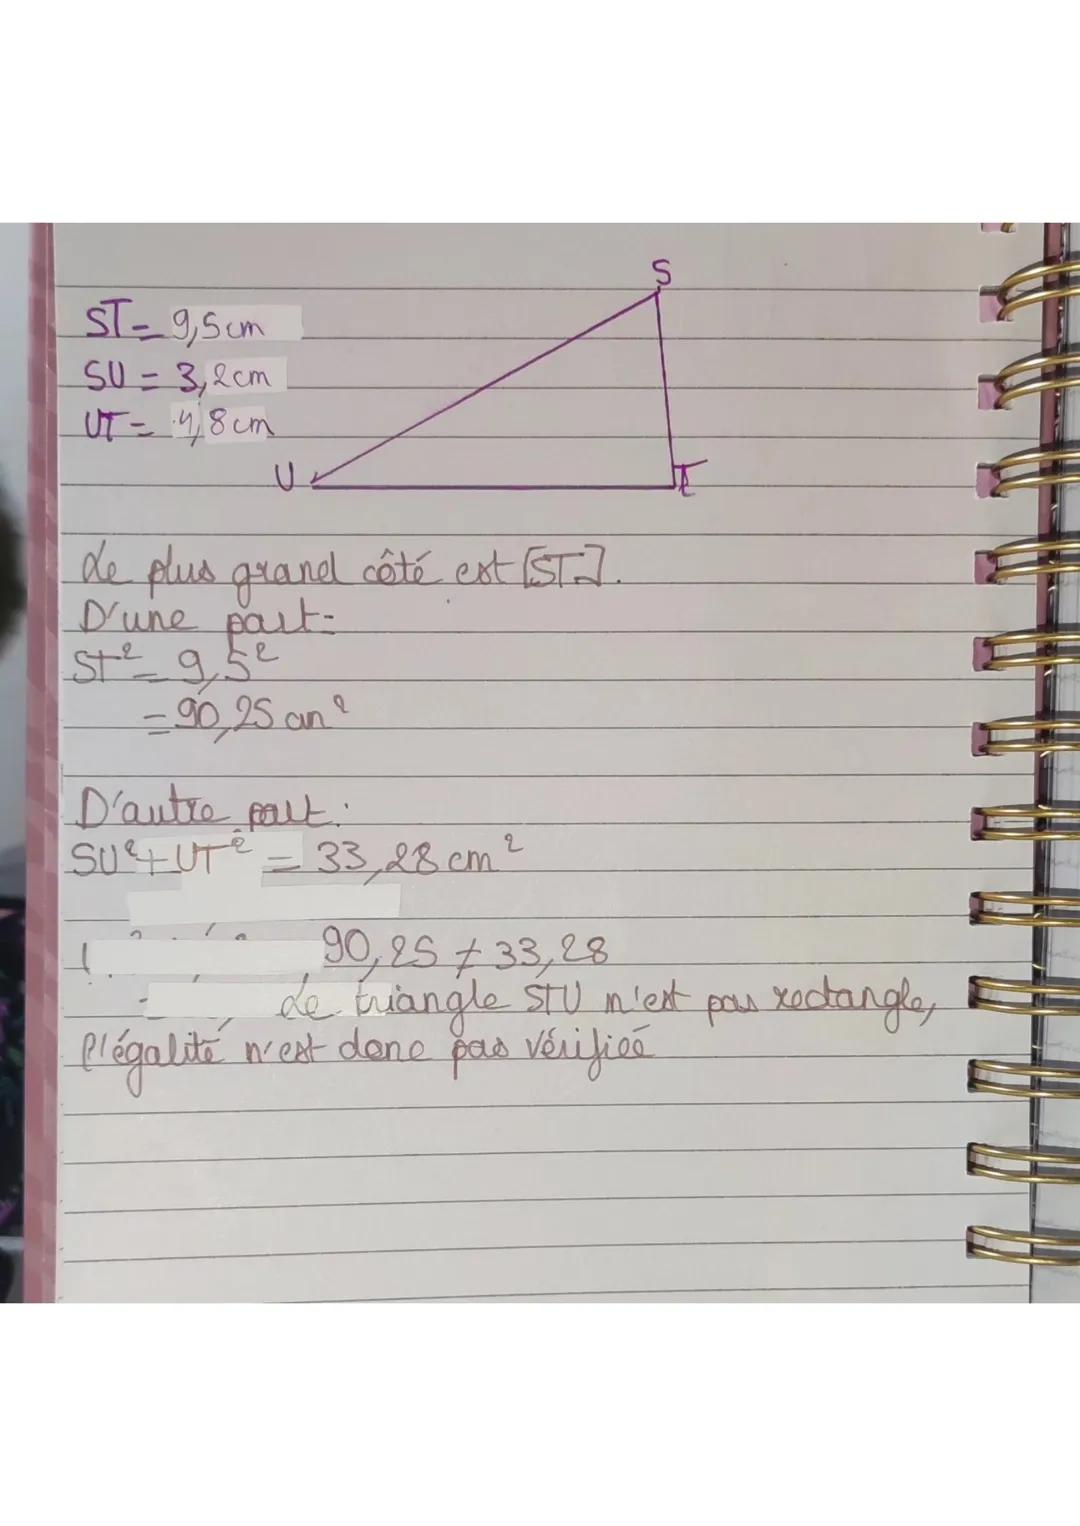 S
ST = 9,5 cm
SU = 3,2 cm
UT = 4,8 cm
U
T
Le plus grand côté est [ST].
D'une part:
ST² = 9,5²
= 90,25 cm²
D'autre part:
SU² + UT² = 33,28 cm²
90,25 ≠ 33,28
Le triangle STU n'est pas rectangle,
l'égalité n'est donc pas vérifiée